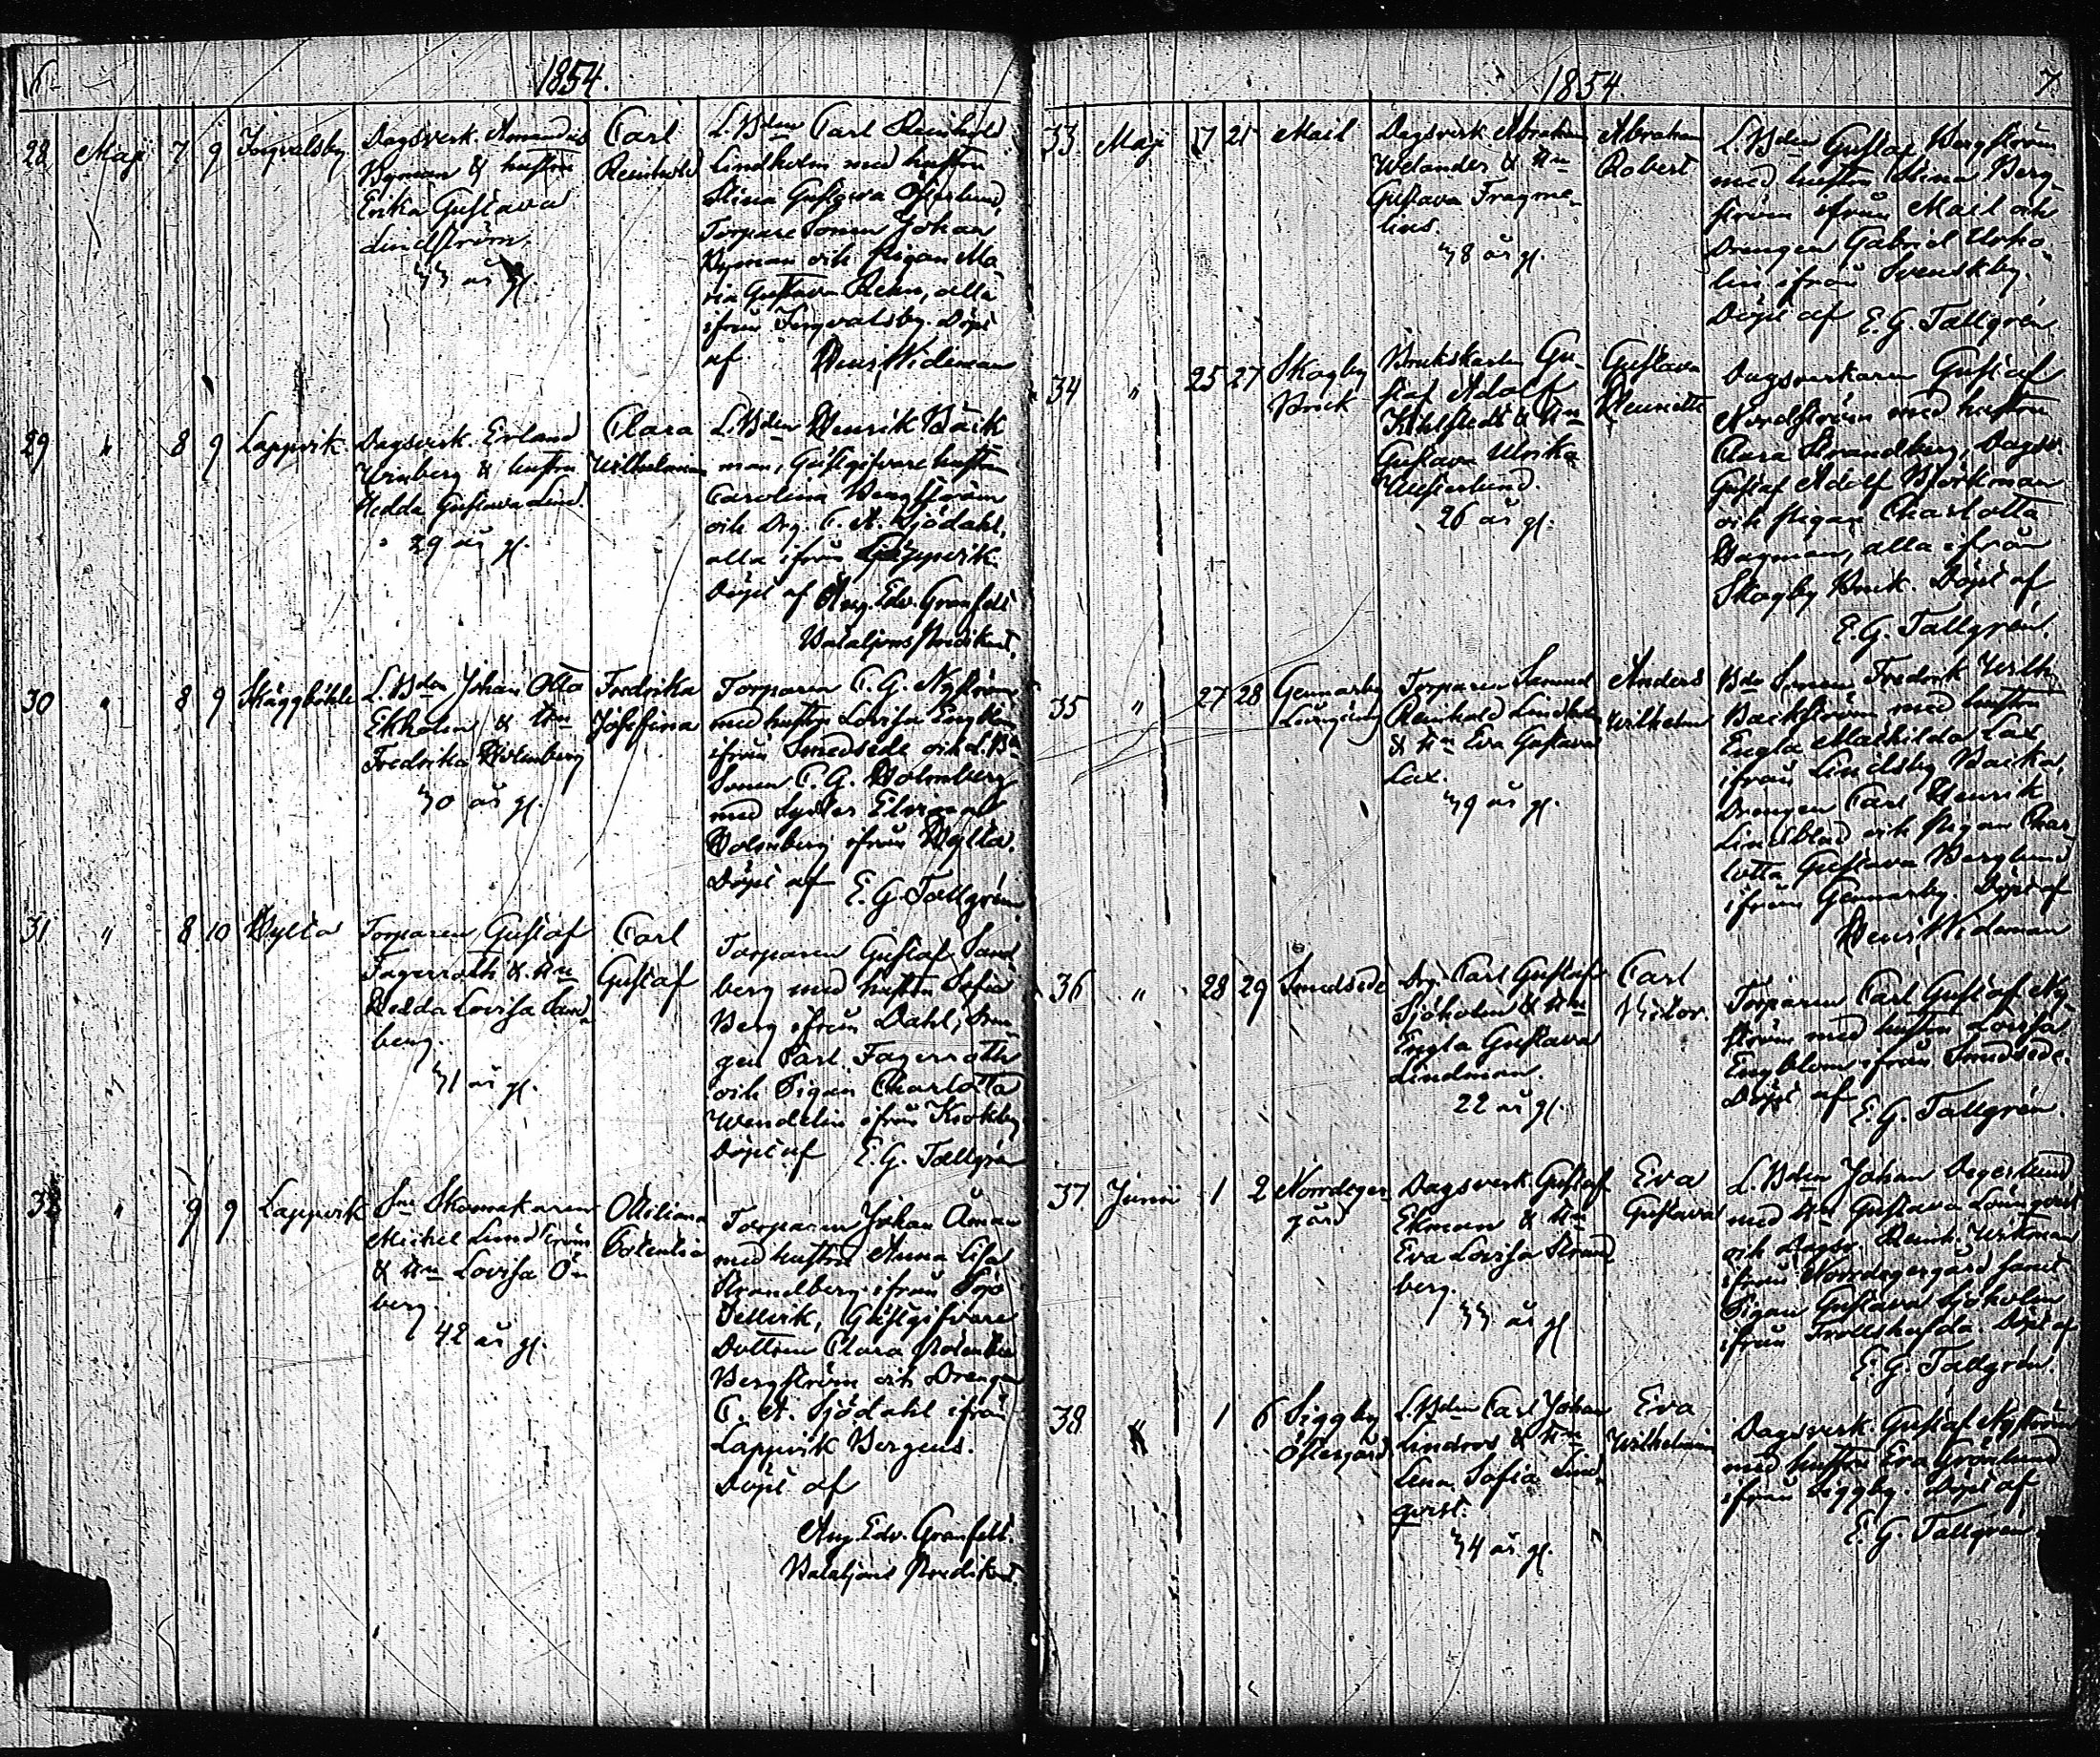 6
1854.
28 Maj 7 9 Ingvalsby
Dagsverk. Amandus
Nyman & hustrun
Erika Gustava
Lindström.
33 år gl.
Carl
Reinhold
L. Bden Carl Reinhold
Lindholm med hustru
Stina Gustava Österlund,
Torpare Sonen Johan
Nyman och Pigan Ma-
ria Gustava Rehn, alla
ifrån Ingvalsby. Döpt
af Henr. Wideman
29 " 8 9 Lappvik
Dagsverk. Erland
& hustru
Hedda Gustava Lind.
29 år gl.
Clara
Wilhelmina
L. Bden Henrik Bäck
man, Gästgifvare hustru
Carolina Bergström
och Drg. C. A. Sjödahl,
alla ifrån Lappvik.
Döpt af Aug. Edv. Granfelt
Bataljons Predikant.
30 " 8 9 Skäggböhle
L. Bden Johan Otto
Ekholm & Hu
Fredrika Holmberg
30 år gl.
Fredrika
Josefina
Torparen C. G. Nyström
med hustru Lovisa Engblom
ifrån Smedsede och L. Bd
Sonen C. G. Holmberg
med Syster Elvira
Holmberg ifrån Hylta.
Döpt af E. G. Tallgrén
31 " 8 10 Hylta
Torparen Gustaf
Fagerroth & Hu
Hedda Lovisa Sand-
berg.
31 år gl.
Carl
Gustaf
Torparen Gustaf Sand-
berg med hustru Sofia
Berg ifrån Dahl, Dren-
gen Carl Fagerroth
och Pigan Charlotta
Wendelin ifrån Krokby
Döpt af E. G. Tallgrén
32 " 9 9 Lappvik
Skomakaren
Michel Lundström
& Hu Lovisa Ön-
berg.
42 år gl.
Otiliana
Torparen Johan Öman
med hustru Anna Lisa
Strandberg ifrån
Gästgifvare
Dottren Clara
Bergström och Drengen
C. A. Sjödahl ifrån
Lappvik Bergens.
Döpt af
Aug. Edv. Granfelt.
Bataljons Predikant.
1854
7.
33 Maj 17 21 Mail
Dagsverk. Abraham
Welander & Hu
Gustava Fragme-
lius.
38 år gl.
Abraham
Robert
L. Bden Gustaf Bergström
med hustru Stina Berg-
ström ifrån Mail och
Drengen Gabriel
ifrån Svenskby.
Döpt af E. G. Tallgrén
34 " 25 27 Skogby
Bruk
Brukskarlen Gu-
staf Adolf
Kihlstedt & Hu
Gustava Ulrika
Westerlund.
26 år gl.
Gustava
Henriette
Dagsverkaren Gustaf
Nordström med hustru
Clara Strandberg, Dagsv.
Gustaf Adolf Björkman
och Pigan Charlotta
Hagman, alla ifrån
Skogby Bruk. Döpt af
E. G. Tallgrén.
35 " 27 28 Gennarby
Torparen Samuel
Reinhold Lindholm
& Hu Eva Gustava
Lax.
39 år gl.
Anders
Wilhelm
Bde Sonen Fredrik Wilh.
Backström med hustru
Engla Mathilda Lax
ifrån Lindsby Backa,
Drengen Carl Henrik
Lindblad och Pigan Char-
lotta Gustava Berglund
ifrån Gennarby. Döpt af
Henr. Wideman
36 " 28 29 Smedsede
Drg. Carl Gustaf
Sjöholm & Hu
Engla Gustava
Lindman.
22 år gl.
Carl
Victor.
Torparen Carl Gustaf Ny-
ström med hustru Lovisa
Engblom ifrån Smedsede.
Döpt af E. G. Tallgrén.
37 Junii 1 2 Norrdeger-
gård
Dagsverk. Gustaf
Ekman & Hu
Eva Lovisa Strand
berg.
33 år gl.
Eva
Gustava
L. Bden Johan Degerlund
med Hu Gustava Lönnqvist
och Dagsv. Reinh. Wikman
ifrån Norrdegergård samt
Pigan Gustava Sjöholm
ifrån Trollshofda. Döpt af
E. G. Tallgrén.
38 " 1 6 Siggby
Östergård
L. Bden Carl Johan
Lindros & Hu
Lena Sofia Lind-
qvist.
34 år gl.
Eva
Wilhelmina
Dagsverk. Gustaf Nyström
med hustru Eva Grönlund
ifrån Siggby. Döpt af
E. G. Tallgrén